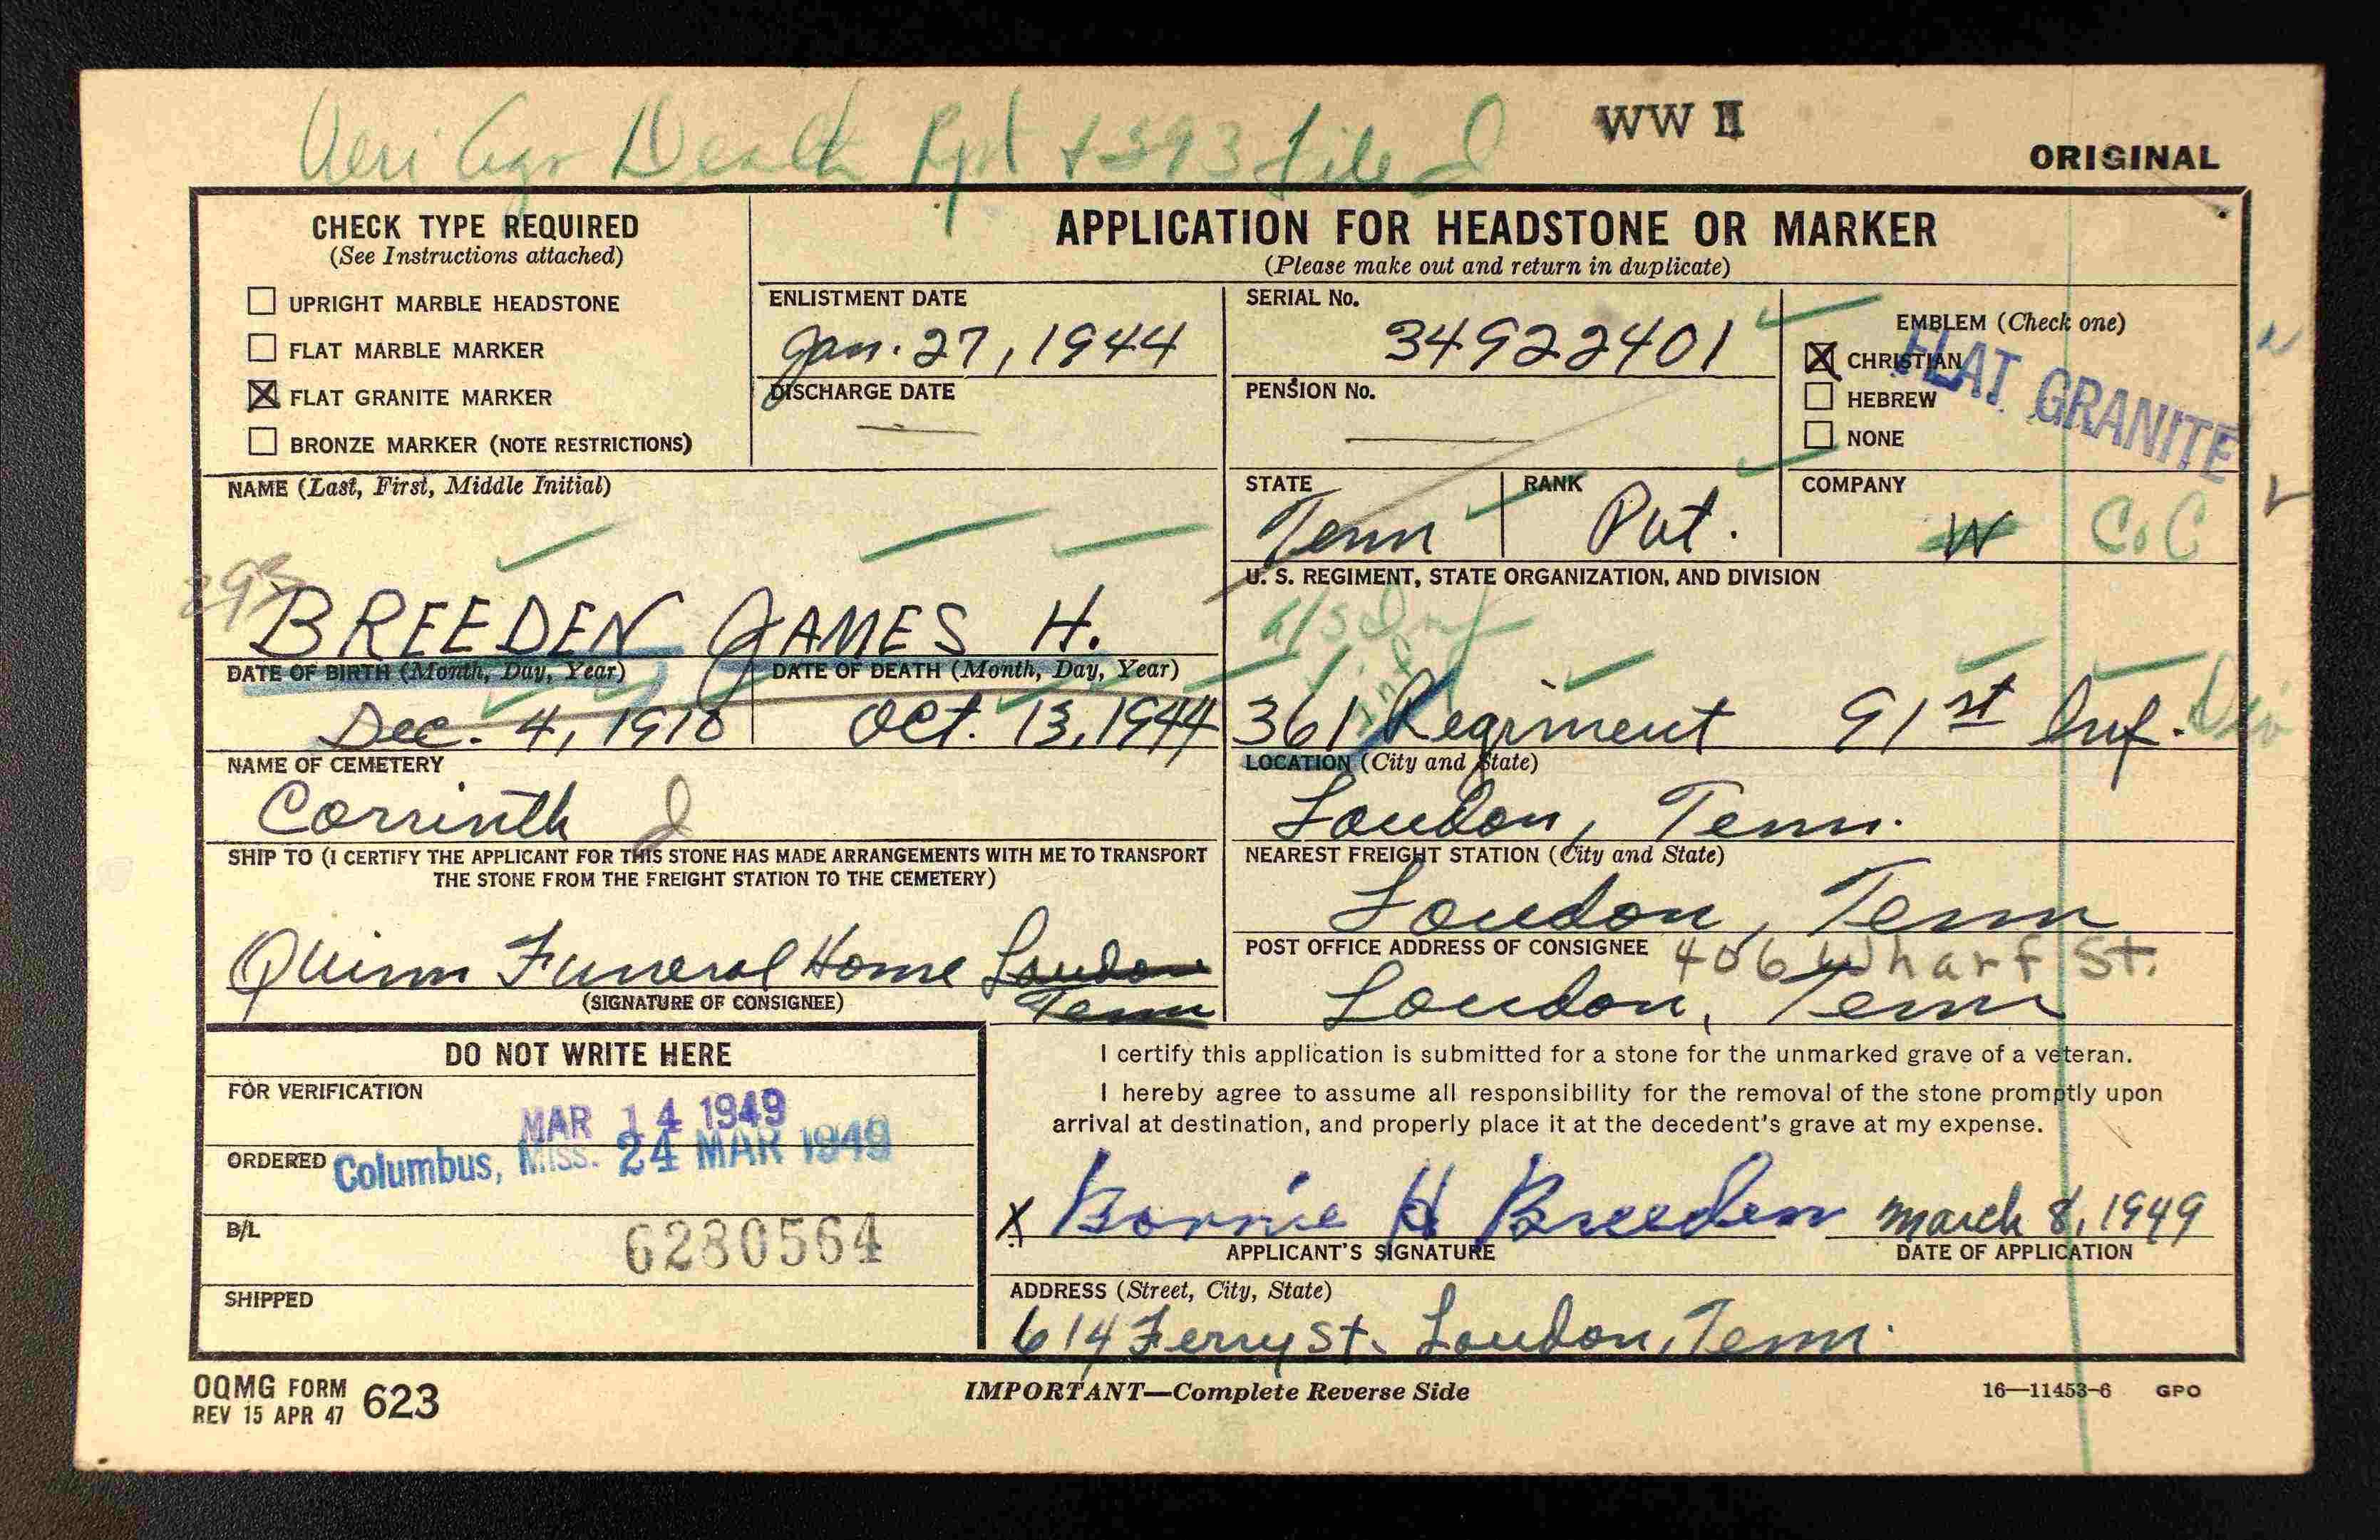 Veri Agr Death Rpt + 393 File
WW II
ORIGINAL
CHECK TYPE REQUIRED
(See Instructions attached)
UPRIGHT MARBLE HEADSTONE
FLAT MARBLE MARKER
FLAT GRANITE MARKER
BRONZE MARKER (NOTE RESTRICTIONS)
APPLICATION FOR HEADSTONE OR MARKER
(Please make out and return in duplicate)
ENLISTMENT DATE
Jan. 27, 1944
DISCHARGE DATE
SERIAL No.
34922401
PENSION No.
EMBLEM (Check one)
CHRISTIAN
HEBREW
NONE
FLAT GRANITE
NAME (Last, First, Middle Initial)
BREEDEN JAMES H.
STATE
Tenn
RANK
Pvt.
COMPANY
W Co C
U. S. REGIMENT, STATE ORGANIZATION, AND DIVISION
Inf
361 Regiment 91st Inf. Div
DATE OF BIRTH (Month, Day, Year)
Dec. 4, 1918
DATE OF DEATH (Month, Day, Year)
Oct. 13, 1944
NAME OF CEMETERY
Corrinth
LOCATION (City and State)
Loudon, Tenn.
SHIP TO (I CERTIFY THE APPLICANT FOR THIS STONE HAS MADE ARRANGEMENTS WITH ME TO TRANSPORT
THE STONE FROM THE FREIGHT STATION TO THE CEMETERY)
Quinn Funeral Home Loudon
Tenn
(SIGNATURE OF CONSIGNEE)
NEAREST FREIGHT STATION (City and State)
Loudon, Tenn
POST OFFICE ADDRESS OF CONSIGNEE 406 Wharf St.
Loudon, Tenn
DO NOT WRITE HERE
FOR VERIFICATION
MAR 14 1949
ORDERED Columbus, Miss. 24 MAR 1949
B/L
6280564
SHIPPED
I certify this application is submitted for a stone for the unmarked grave of a veteran.
I hereby agree to assume all responsibility for the removal of the stone promptly upon
arrival at destination, and properly place it at the decedent's grave at my expense.
X Bonnie H Breeden March 8, 1949
APPLICANT'S SIGNATURE DATE OF APPLICATION
ADDRESS (Street, City, State)
614 Ferry St. Loudon, Tenn.
OQMG FORM 623
REV 15 APR 47
IMPORTANT—Complete Reverse Side
16—11453-6 GPO